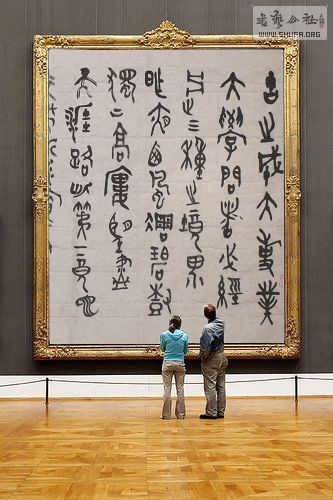 書藝公社
WWW.SHUFA.ORG
古之成大事業
大學問者必經
三種之境界
昨夜西風凋碧樹
獨上高樓望盡
天涯路此第一境也